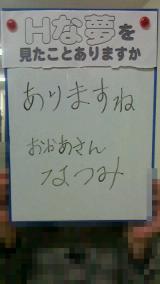 Hな夢を
見たことありますか
ありますね
おかあさん
なつみ